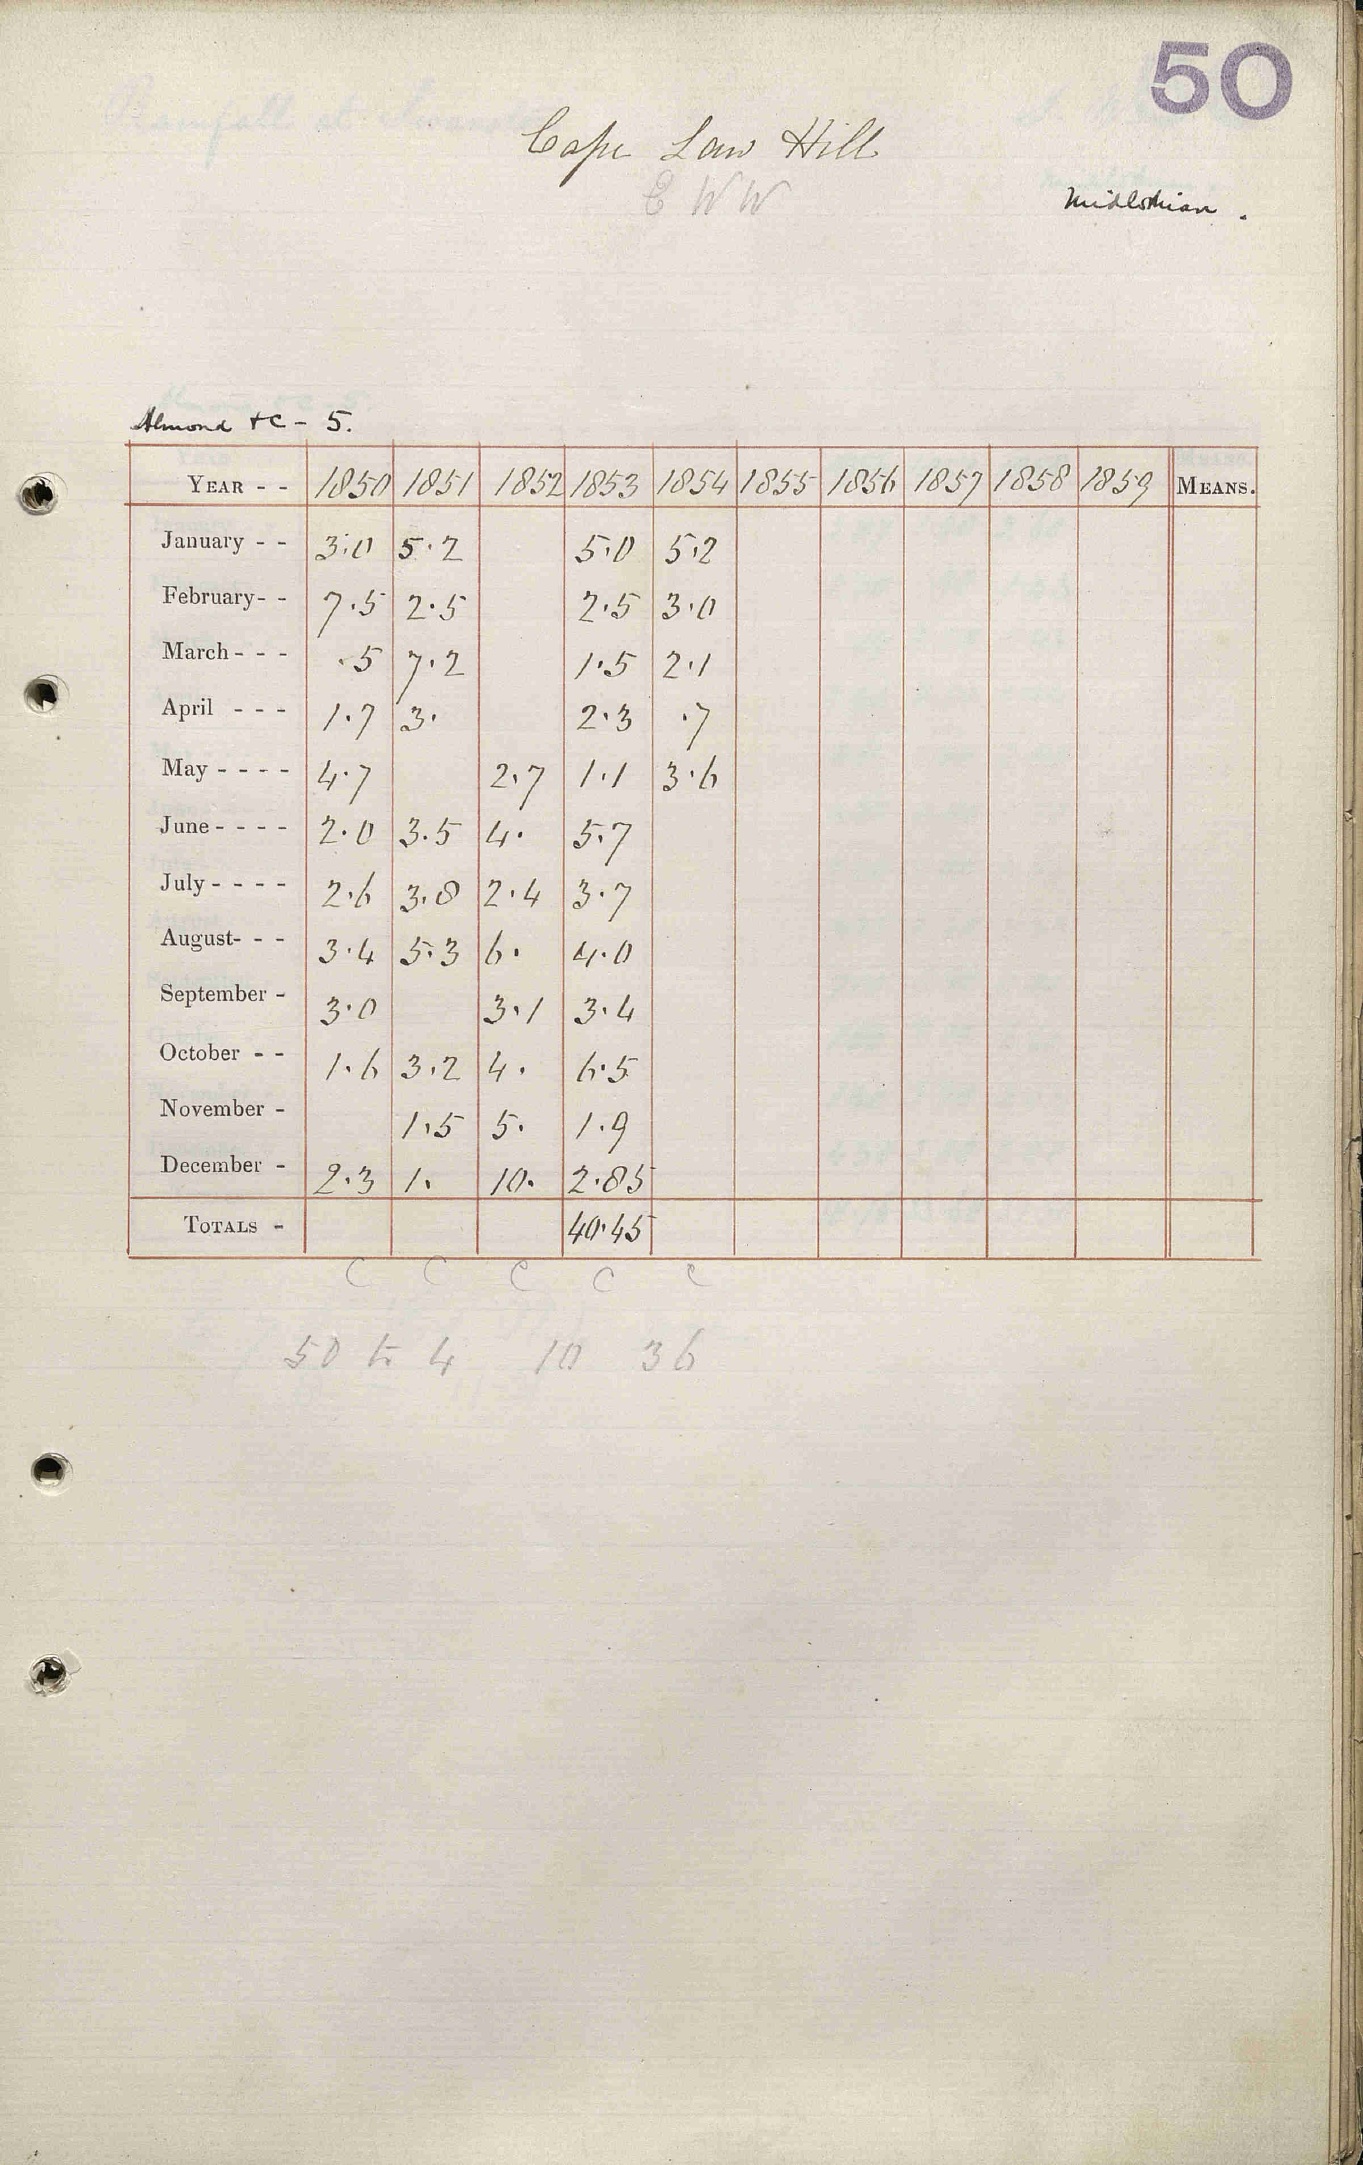 50
Cape Law Hill
E W W
Midlothian.
Almond &c - 5.
YEAR - - 1850 1851 1852 1853 1854 1855 1856 1857 1858 1859 MEANS.
January - - 3.0 5.2 5.0 5.2
February- - 7.5 2.5 2.5 3.0
March - - - .5 7.2 1.5 2.1
April - - - 1.7 3. 2.3 .7
May - - - - 4.7 2.7 1.1 3.6
June - - - - 2.0 3.5 4. 5.7
July - - - - 2.6 3.8 2.4 3.7
August- - - 3.4 5.3 6. 4.0
September - 3.0 3.1 3.4
October - - 1.6 3.2 4. 6.5
November - 1.5 5. 1.9
December - 2.3 1. 10. 2.85
TOTALS - 40.45
C C C C C
50 to 4 10 36